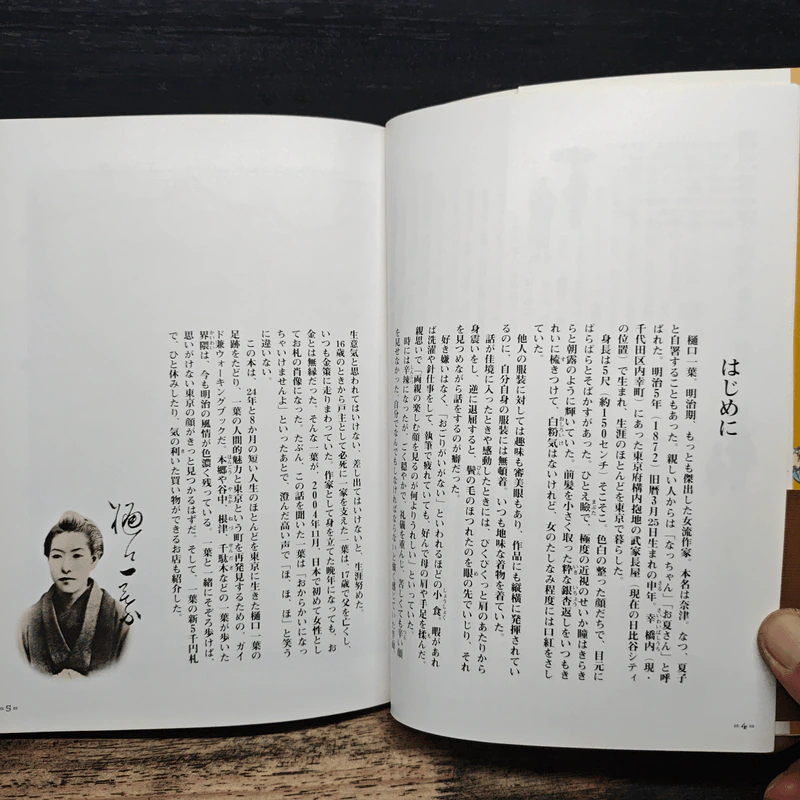 はじめに
樋口一葉。明治期、もっとも傑出した女流作家。本名は奈津。なつ、夏子
と自署することもあった。親しい人からは「なっちゃん」「お夏さん」と呼
ばれた。明治5年(1872)旧暦3月25日生まれの申年。幸橋内(現・
千代田区内幸町)にあった東京府構内抱地の武家長屋(現在の日比谷シティ
の位置)で生まれ、生涯のほとんどを東京で暮らした。
身長は5尺(約150センチ)そこそこ、色白の整った顔だちで、目元に
ぱらぱらとそばかすがあった。ひとえ瞼で、極度の近視のせいか瞳はきらき
らと朝露のように輝いていた。前髪を小さく取った粋な銀杏返しをいつもき
れいに梳きつけて、白粉気はないけれど、女のたしなみ程度には口紅をさし
ていた。
他人の服装に対しては趣味も審美眼もあり、作品にも縦横に発揮されてい
るのに、自分自身の服装には無頓着。いつも地味な着物を着ていた。
話が佳境に入ったときや感動したときには、ぴくぴくっと肩のあたりから
身震いをし、逆に退屈すると、鬢の毛のほつれたのを眼の先でいじり、それ
を見つめながら話をするのが癖だった。
好き嫌いはなく、「おごりがいがない」といわれるほどの小食。暇があれ
ば洗濯や針仕事をして、執筆で疲れていても、好んで母の肩や手足を揉んだ。
親思いで、「両親の楽しむ顔を見るのが何よりうれしい」といっていた。
時には辛辣になったが、ごく穏やかで、礼儀を重んじ、苦しくても辛い顔
を見せなかった。
生意気と思われてはいけない、差し出てはいけないと、生涯努めた。
16歳のときから戸主として必死に一家を支えた一葉は、17歳で父を亡くし、
いつも金策に走りまわっていた。作家として身を立てた晩年になっても、お
金とは無縁だった。そんな一葉が、2004年11月、日本で初めて女性とし
てお札の肖像になった。たぶん、この話を聞いた一葉は「おからかいになっ
ちゃいけませんよ」といったあとで、澄んだ高い声で「ほ、ほ、ほ」と笑う
に違いない。
この本は、24年と8か月の短い人生のほとんどを東京に生きた樋口一葉の
足跡をたどり、一葉の人間的魅力と東京という町を再発見するための、ガイ
ド兼ウォーキングブックだ。本郷や谷中、根津、千駄木などの一葉が歩いた
界隈は、今も明治の風情が色濃く残っている。一葉と一緒にそぞろ歩けば、
思いがけない東京の顔がきっと見つかるはずだ。そして、一葉の新5千円札
で、ひと休みしたり、気の利いた買い物ができるお店も紹介した。
樋口一葉
=4=
=5=